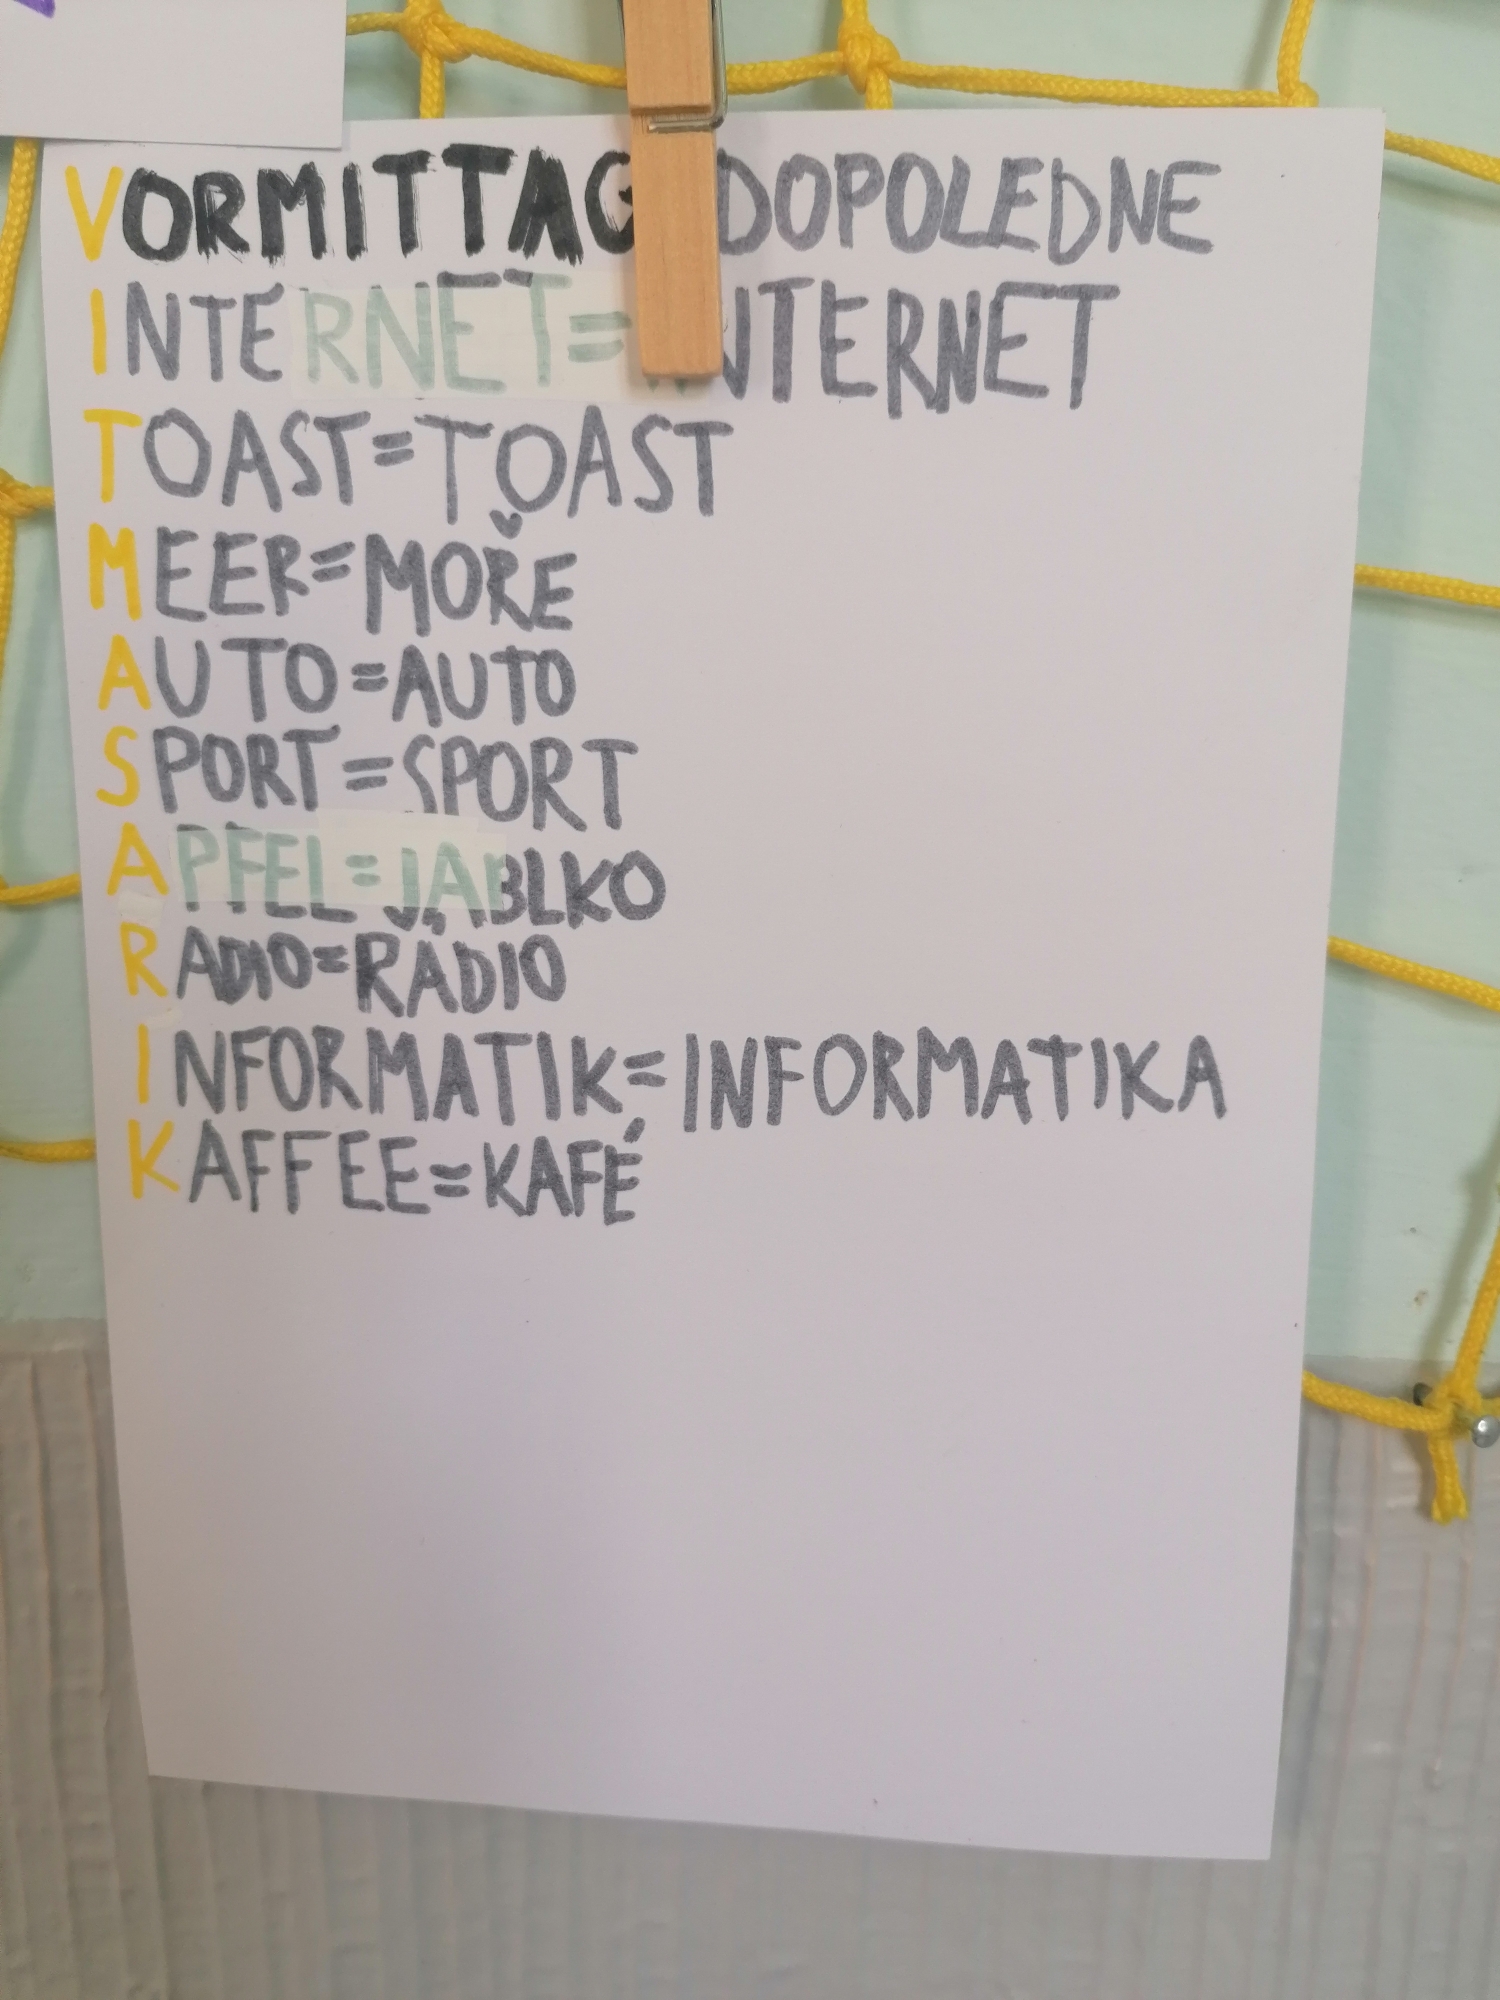 VORMITTAG DOPOLEDNE
INTERNET=INTERNET
TOAST=TOAST
MEER=MOŘE
AUTO=AUTO
SPORT=SPORT
APFEL=JABLKO
RADIO=RÁDIO
INFORMATIK=INFORMATIKA
KAFFEE=KAFÉ